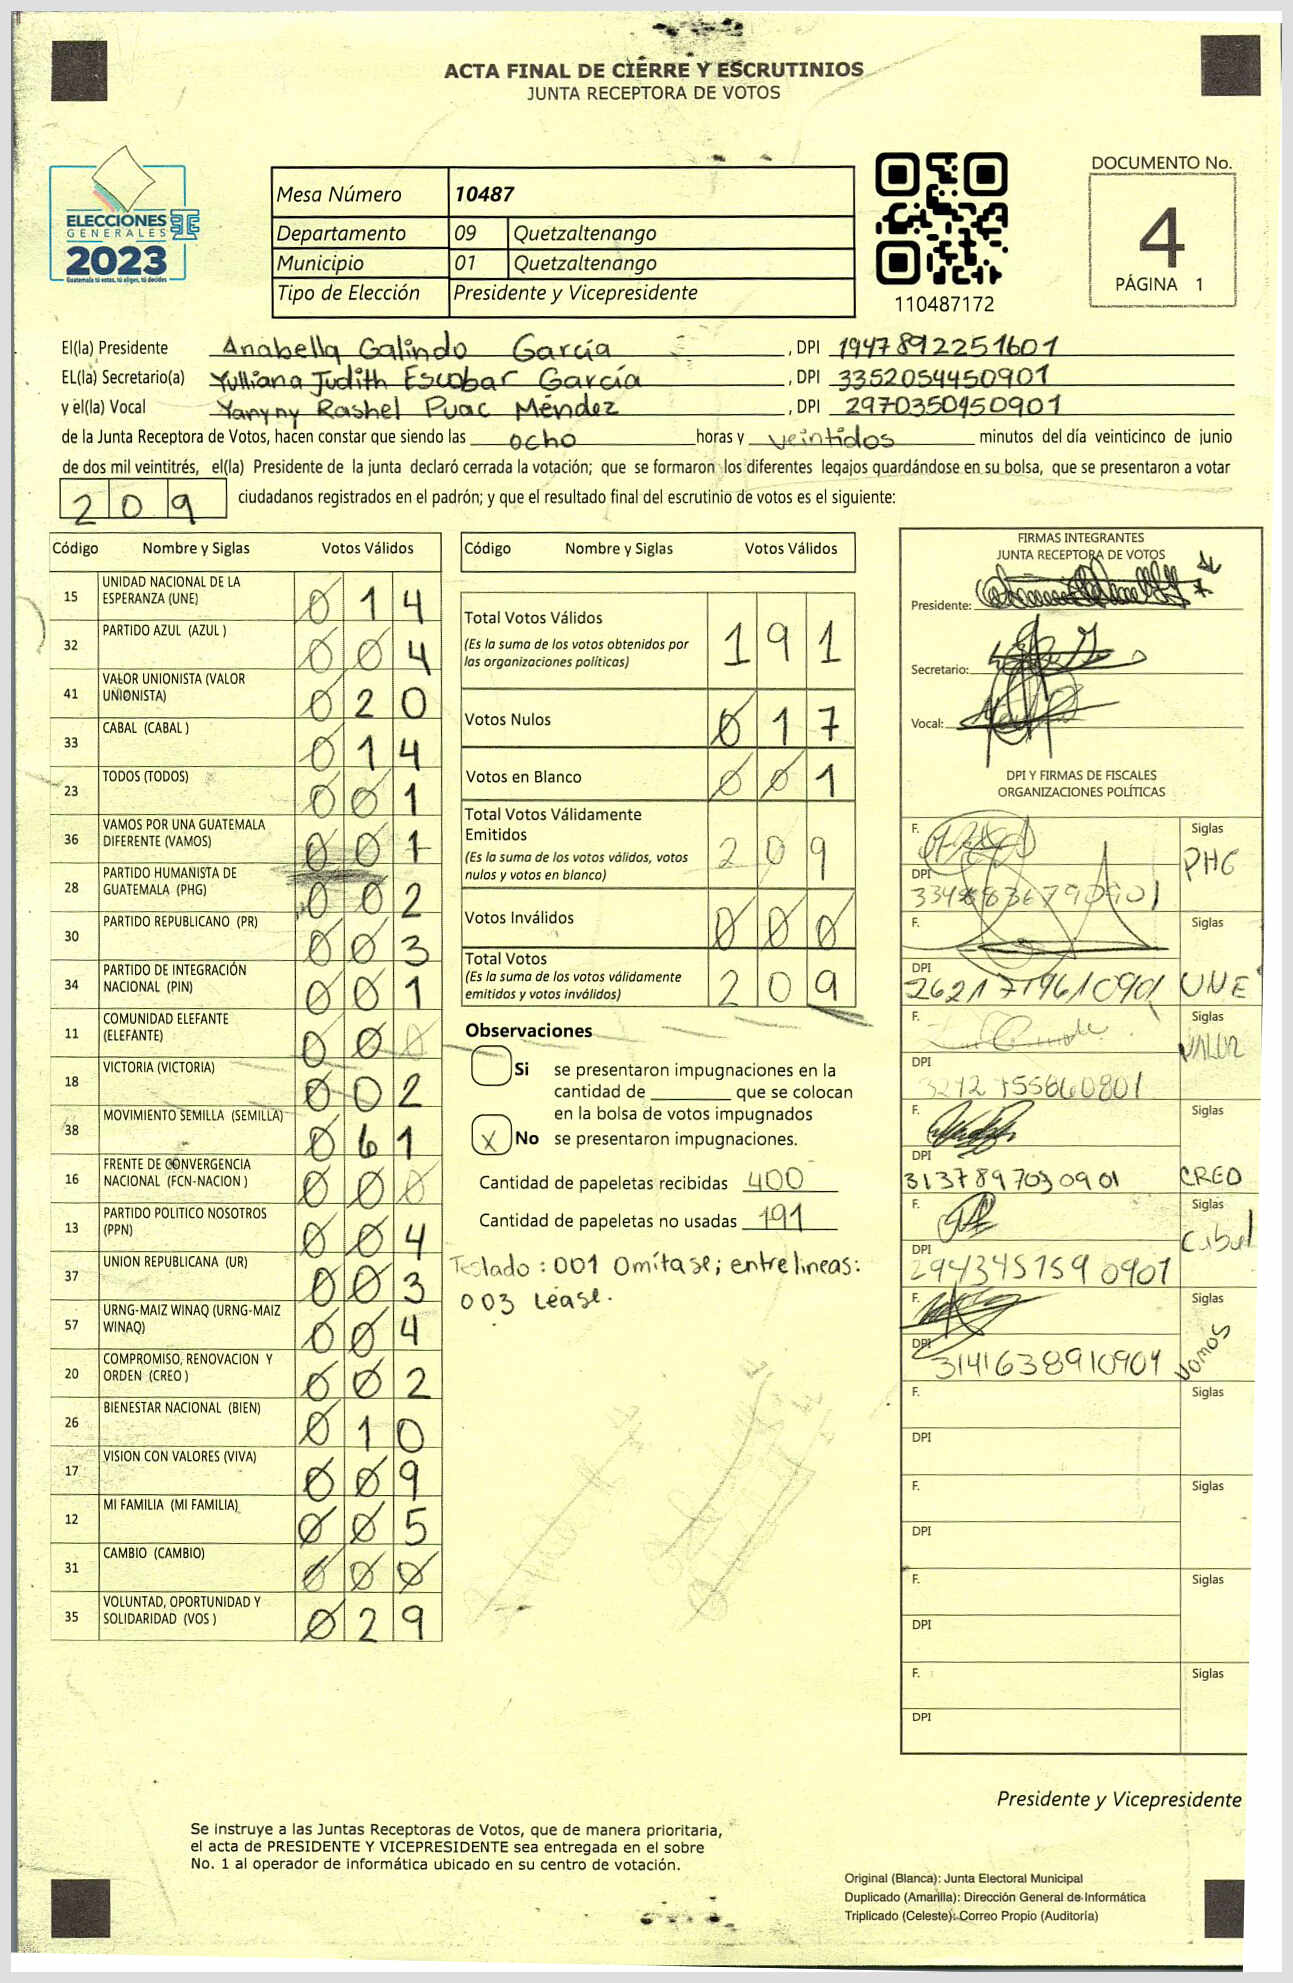 ACTA FINAL DE CIERRE Y ESCRUTINIOS
JUNTA RECEPTORA DE VOTOS
ELECCIONES
GENERALES
2023
Guatemala tú votas, tú eliges, tú decides
Mesa Número 10487
Departamento 09 Quetzaltenango
Municipio 01 Quetzaltenango
Tipo de Elección Presidente y Vicepresidente
110487172
DOCUMENTO No.
4
PÁGINA 1
El(la) Presidente Anabella Galindo García , DPI 1947892251601
EL(la) Secretario(a) Yulliana Judith Escobar García , DPI 3352054450901
y el(la) Vocal Yanyny Rashel Puac Méndez , DPI 2970350450901
de la Junta Receptora de Votos, hacen constar que siendo las ocho horas y veintidos minutos del día veinticinco de junio
de dos mil veintitrés, el(la) Presidente de la junta declaró cerrada la votación; que se formaron los diferentes legajos quardándose en su bolsa, que se presentaron a votar
209 ciudadanos registrados en el padrón; y que el resultado final del escrutinio de votos es el siguiente:
Código Nombre y Siglas Votos Válidos
15 UNIDAD NACIONAL DE LA ESPERANZA (UNE) 014
32 PARTIDO AZUL (AZUL ) 004
41 VALOR UNIONISTA (VALOR UNIONISTA) 020
33 CABAL (CABAL ) 014
23 TODOS (TODOS) 001
36 VAMOS POR UNA GUATEMALA DIFERENTE (VAMOS) 001
28 PARTIDO HUMANISTA DE GUATEMALA (PHG) 002
30 PARTIDO REPUBLICANO (PR) 003
34 PARTIDO DE INTEGRACIÓN NACIONAL (PIN) 001
11 COMUNIDAD ELEFANTE (ELEFANTE) 000
18 VICTORIA (VICTORIA) 002
38 MOVIMIENTO SEMILLA (SEMILLA) 061
16 FRENTE DE CONVERGENCIA NACIONAL (FCN-NACION ) 000
13 PARTIDO POLITICO NOSOTROS (PPN) 004
37 UNION REPUBLICANA (UR) 003
57 URNG-MAIZ WINAQ (URNG-MAIZ WINAQ) 004
20 COMPROMISO, RENOVACION Y ORDEN (CREO ) 002
26 BIENESTAR NACIONAL (BIEN) 010
17 VISION CON VALORES (VIVA) 009
12 MI FAMILIA (MI FAMILIA) 005
31 CAMBIO (CAMBIO) 000
35 VOLUNTAD, OPORTUNIDAD Y SOLIDARIDAD (VOS ) 029
Código Nombre y Siglas Votos Válidos
Total Votos Válidos 191
(Es la suma de los votos obtenidos por
las organizaciones políticas)
Votos Nulos 017
Votos en Blanco 001
Total Votos Válidamente
Emitidos 209
(Es la suma de los votos válidos, votos
nulos y votos en blanco)
Votos Inválidos 000
Total Votos 209
(Es la suma de los votos válidamente
emitidos y votos inválidos)
Observaciones
Si se presentaron impugnaciones en la
cantidad de ________ que se colocan
en la bolsa de votos impugnados
X No se presentaron impugnaciones.
Cantidad de papeletas recibidas 400
Cantidad de papeletas no usadas 191
Testado: 001 Omítase; entrelineas:
003 Léase.
FIRMAS INTEGRANTES
JUNTA RECEPTORA DE VOTOS
Presidente:
Secretario:
Vocal:
DPI Y FIRMAS DE FISCALES
ORGANIZACIONES POLÍTICAS
F. Siglas
DPI PHG
F. Siglas
DPI 2621719610901 UNE
F. Siglas
DPI VALOR
F. Siglas
DPI 3137897030901 CREO
F. Siglas
DPI 2943457590901 Cabal
F. Siglas
DPI 3141638910901 Vamos
F. Siglas
DPI
F. Siglas
DPI
F. Siglas
DPI
F. Siglas
DPI
Presidente y Vicepresidente
Se instruye a las Juntas Receptoras de Votos, que de manera prioritaria,
el acta de PRESIDENTE Y VICEPRESIDENTE sea entregada en el sobre
No. 1 al operador de informática ubicado en su centro de votación.
Original (Blanca): Junta Electoral Municipal
Duplicado (Amarilla): Dirección General de Informática
Triplicado (Celeste): Correo Propio (Auditoría)